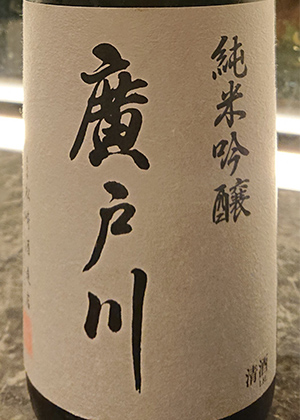 純米吟醸
廣戸川
清酒